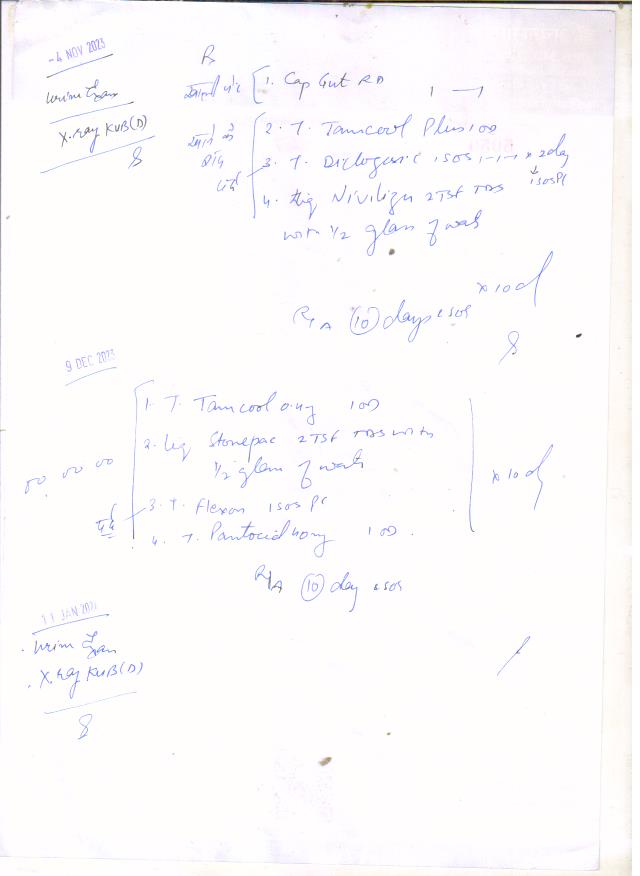 -4 NOV 2023
Urine Exam
X-ray KUB (D)
Rx
1. Cap Gut RD 1 — 1
2. T. Tamcool Plus 1 OD
3. T. Diclogesic 1 SOS 1-1-1 x 2 day
↓ 1 SOS PC
दर्द
4. 2 TSF TDS
with 1/2 glass of wat
x 10 d
R/A 10 days & SOS
9 DEC 2023
1. T. Tamcool 0.4mg 1 OD
2. Liq Stonepac 2 TSF TDS with
1/2 glass of wat
3. T. Flexon 1 SOS PC
दर्द
4. T. Pantocid 40mg 1 OD.
x 10 d
R/A 10 day & SOS
11 JAN
. Urine Exam
. X-ray KUB (D)